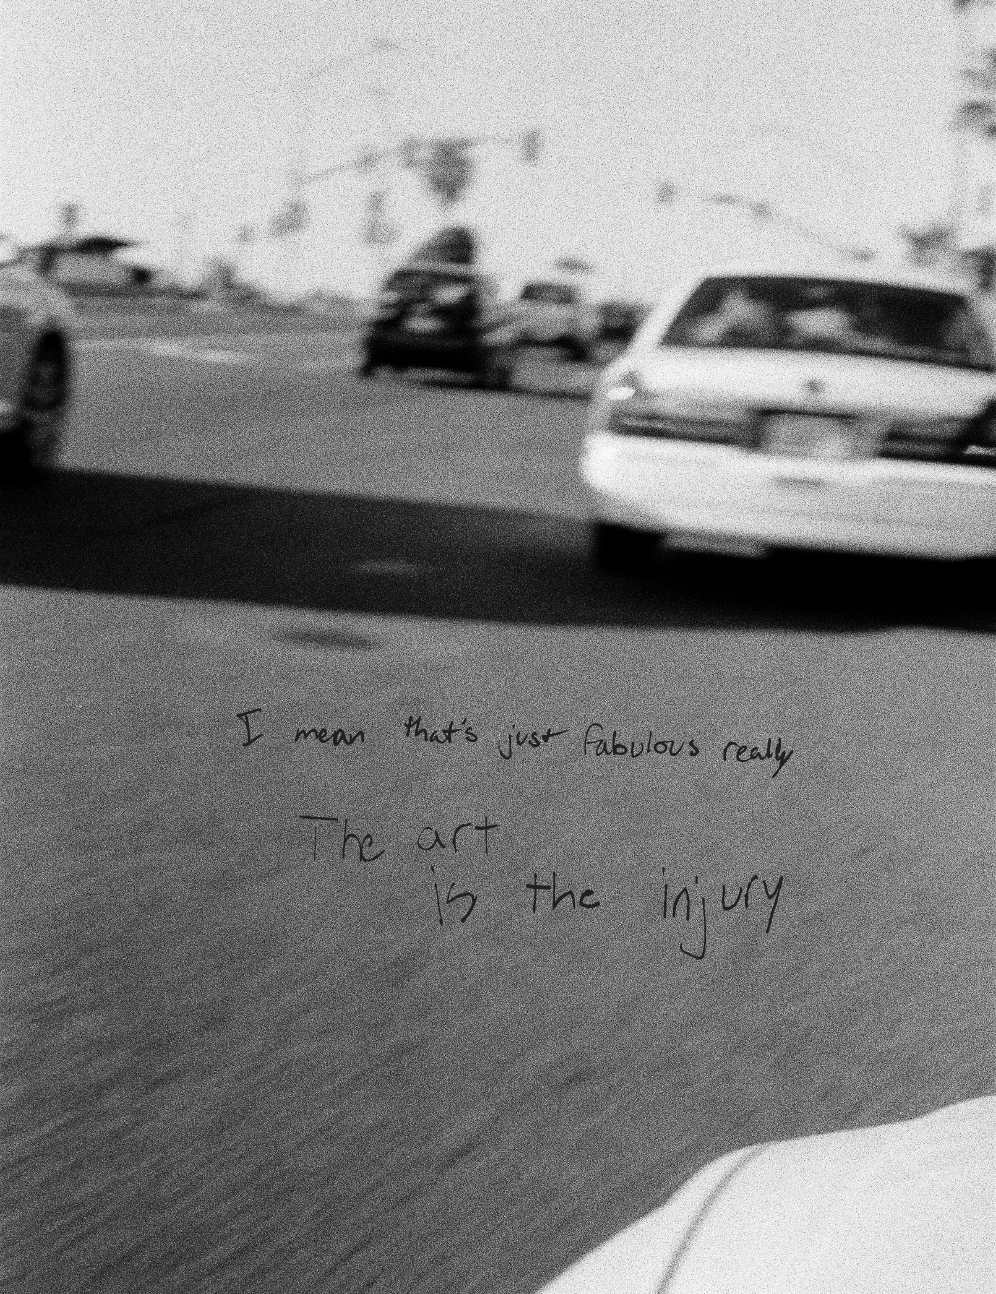 I mean that's just fabulous really
The art
is the injury